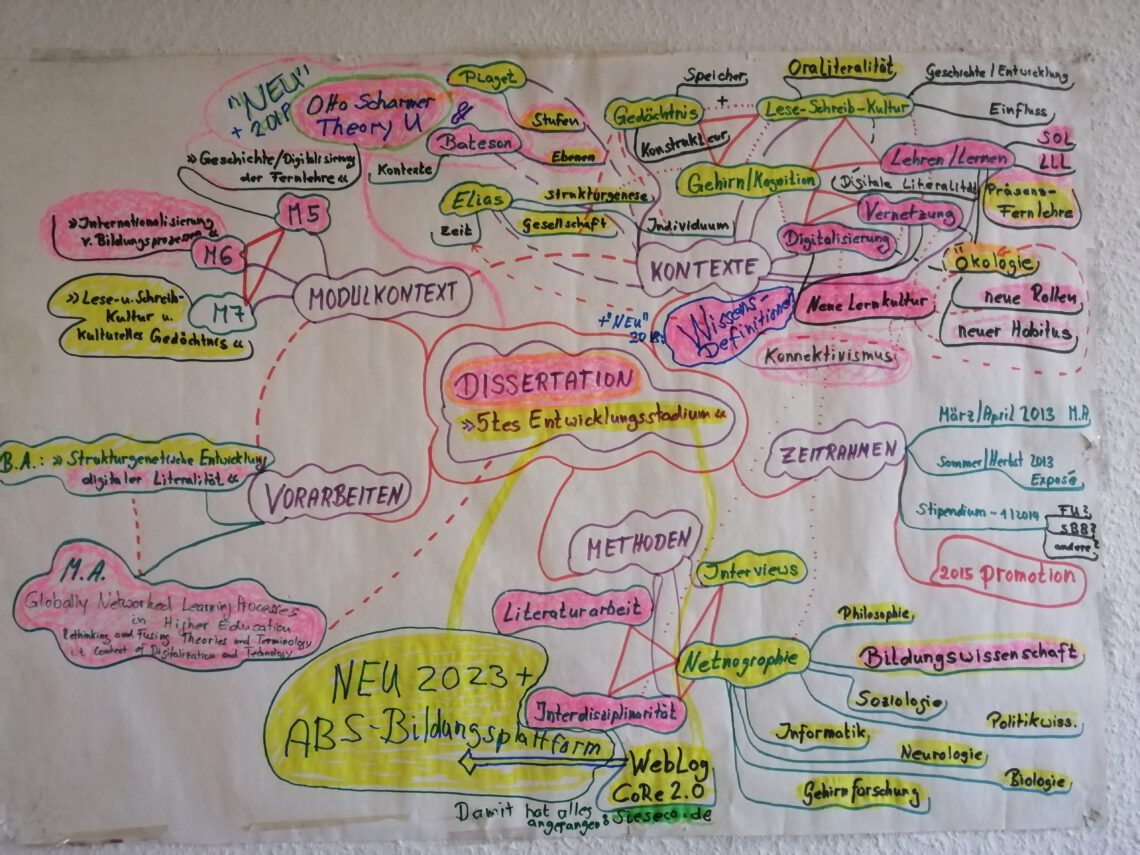 "NEU"
+ 2018
Otto Scharmer
Theory U
&
Piaget
Stufen
Bateson
Ebenen
Kontexte
Elias
Strukturgenese
Gesellschaft
Zeit
Individuum
»Geschichte/Digitalisierung
der Fernlehre«
M5
»Internationalisierung
v. Bildungsprozessen«
M6
»Lese-u. Schreib-
Kultur u.
kulturelles Gedächtnis«
M7
MODULKONTEXT
Speicher
+
Konstrukteur
Gedächtnis
OraLiteralität
Lese-Schreib-Kultur
Geschichte/Entwicklung
Einfluss
Gehirn/Kognition
Lehren/Lernen
SOL
LLL
Präsenz-
Fernlehre
Digitale Literalität
Vernetzung
Digitalisierung
KONTEXTE
Ökologie
neue Rollen
neuer Habitus
Neue Lernkultur
+"NEU"
2018:
Wissens-
Definitionen
Konnektivismus
DISSERTATION
»5tes Entwicklungsstadium«
ZEITRAHMEN
März/April 2013 M.A.
Sommer/Herbst 2013
Exposé
Stipendium ~ 4/2014
FU?
SBB?
andere?
2015 Promotion
B.A.: »Strukturgenetische Entwicklung
digitaler Literalität«
VORARBEITEN
M.A.
Globally Networked Learning Processes
in Higher Education
Rethinking and Fusing Theories and Terminology
i.t. Context of Digitalization and Technology
METHODEN
Interviews
Literaturarbeit
Netnographie
Interdisziplinarität
Philosophie
Bildungswissenschaft
Soziologie
Politikwiss.
Informatik
Neurologie
Biologie
Gehirnforschung
NEU 2023+
ABS-Bildungsplattform
WebLog
CoRe 2.0
Sieseco.de
Damit hat alles
angefangen: